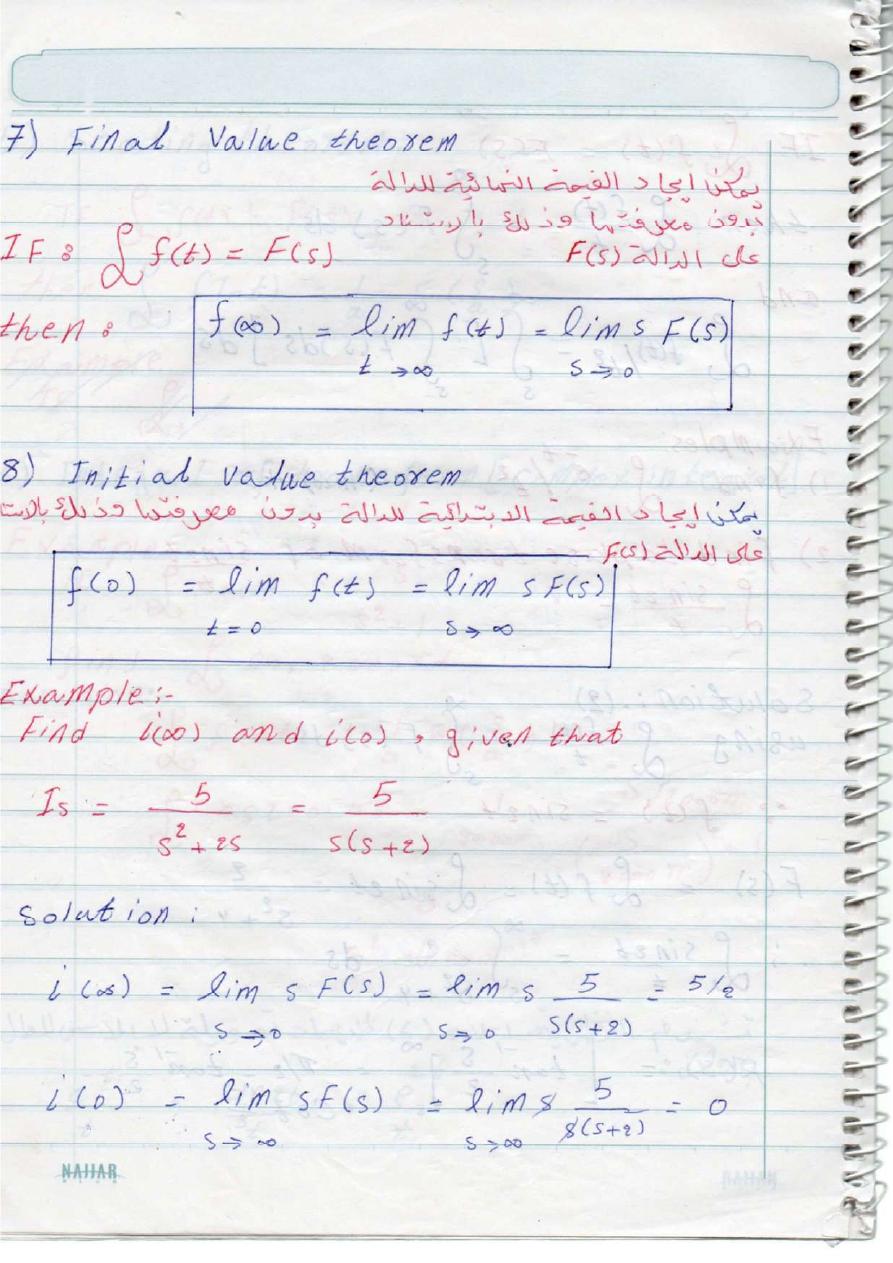 7) Final Value theorem
يمكن إيجاد القيمة النهائية للدالة
بدون معرفتها وذلك بالاستناد
على الدالة F(s)
IF : ℒ f(t) = F(s)
then : f(∞) = lim f(t) = lim s F(s)
t → ∞ s → 0
8) Initial value theorem
يمكن إيجاد القيمة الابتدائية للدالة بدون معرفتها وذلك بالاست
على الدالة F(s)
f(0) = lim f(t) = lim s F(s)
t = 0 s → ∞
Example :-
Find i(∞) and i(0) , given that
Is = 5 / (s² + 2s) = 5 / (s(s+2))
Solution :
i(∞) = lim s F(s) = lim s 5 / (s(s+2)) = 5/2
s → 0 s → 0
i(0) = lim s F(s) = lim s 5 / (s(s+2)) = 0
s → ∞ s → ∞
NAJJAR